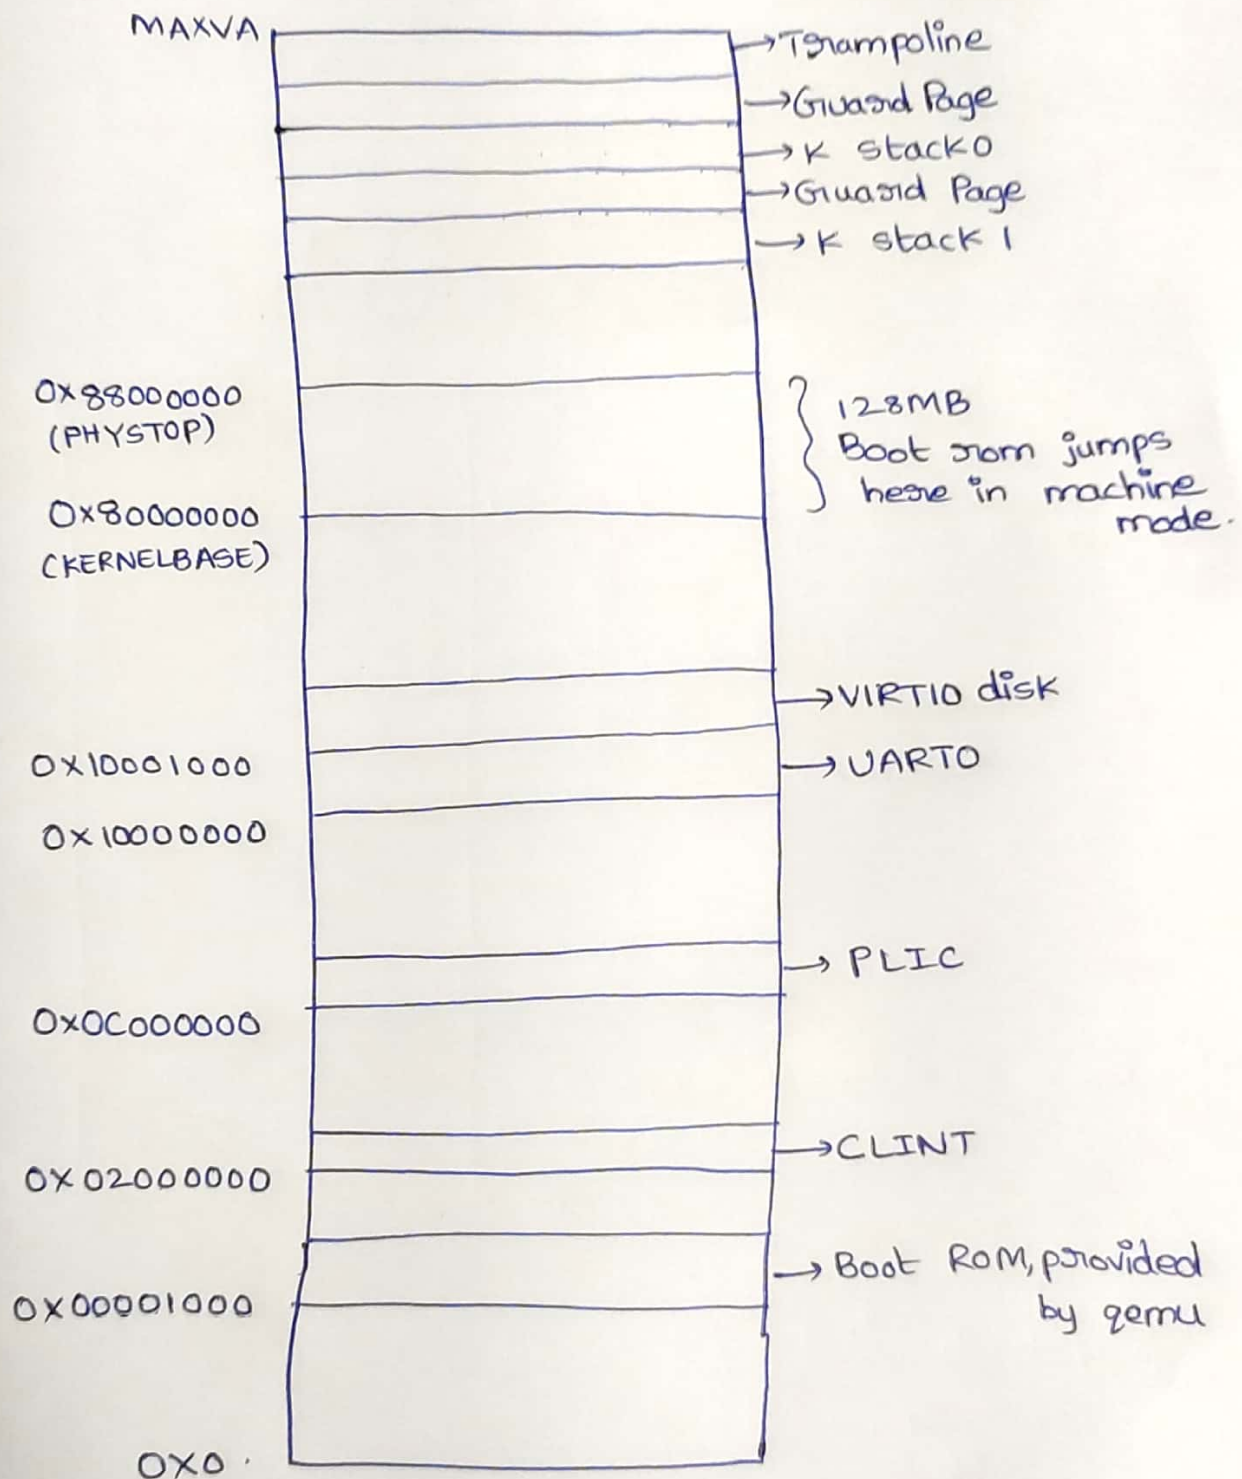 MAXVA
Trampoline
Guard Page
K stack 0
Guard Page
K stack 1
0X88000000
(PHYSTOP)
128MB
Boot rom jumps
here in machine
mode.
0X80000000
(KERNELBASE)
VIRTIO disk
0X10001000
UART0
0X10000000
PLIC
0X0C000000
CLINT
0X02000000
Boot ROM, provided
by qemu
0X00001000
0X0.